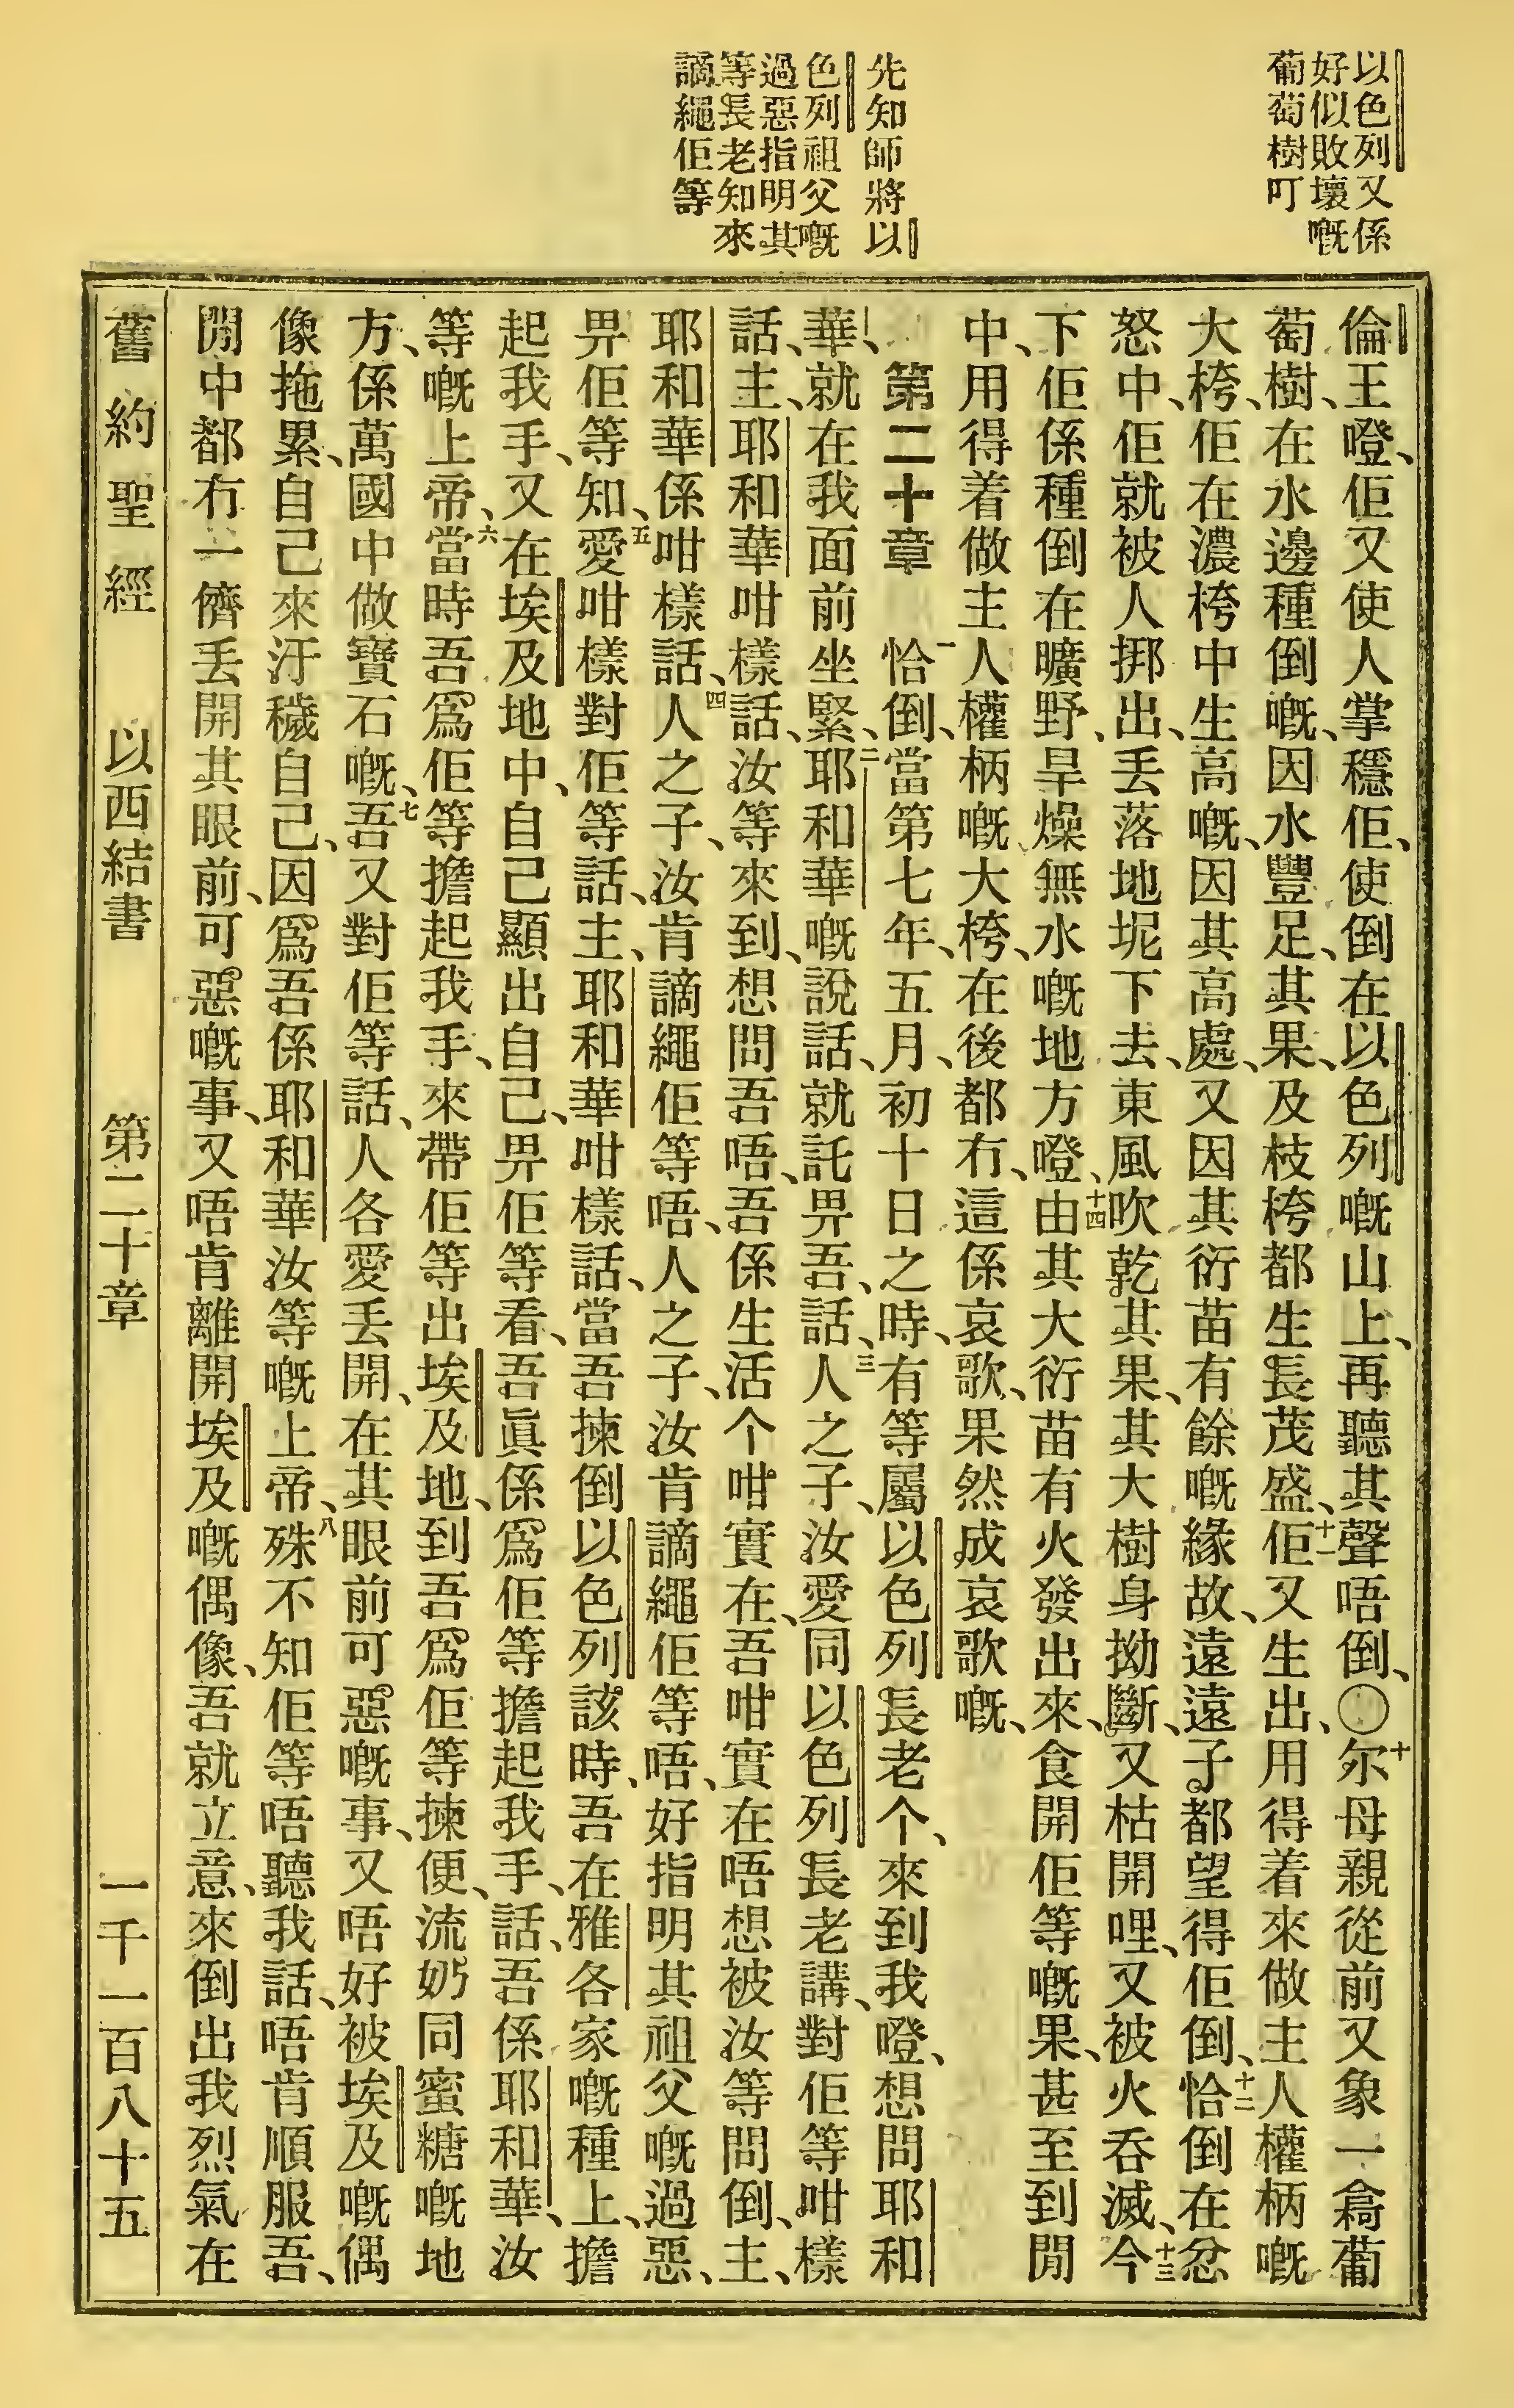 以色列又係
好似敗壞嘅
葡萄樹叮
先知師將以
色列祖父嘅
過惡指明其
等長老知來
謫繩佢等
倫王噔、佢又使人掌穩佢、使倒在以色列嘅山上、再聽其聲唔倒、〇十尔母親從前又象一樖葡
萄樹、在水邊種倒嘅、因水豐足、其果、及枝桍都生長茂盛、十一佢又生出、用得着來做主人權柄嘅
大桍、佢在濃桍中生高嘅、因其高處、又因其衍苗有餘嘅緣故、遠遠子都望得佢倒、十二恰倒在忿
怒中、佢就被人挷出、丢落地坭下去、東風吹乾其果、其大樹身拗斷、又枯開哩、又被火吞滅、十三今
下佢係種倒在曠野、旱燥無水嘅地方噔、十四由其大衍苗有火發出來、食開佢等嘅果、甚至到閒
中、用得着做主人權柄嘅大桍、在後都冇、這係哀歌、果然成哀歌嘅、
第二十章　一恰倒、當第七年、五月、初十日之時、有等屬以色列長老个、來到我噔、想問耶和
華、就在我面前坐緊、二耶和華嘅說話、就託畀吾、話、三人之子、汝愛同以色列長老講、對佢等咁樣
話、主、耶和華咁樣話、汝等來到、想問吾唔、吾係生活个咁實在、吾咁實在唔想被汝等問倒、主、
耶和華係咁樣話、四人之子、汝肯謫繩佢等唔、人之子、汝肯謫繩佢等唔、好指明其祖父嘅過惡、
畀佢等知、五愛咁樣對佢等話、主、耶和華咁樣話、當吾揀倒以色列該時、吾在雅各家嘅種上、擔
起我手、又在埃及地中、自己顯出自己、畀佢等看、吾眞係爲佢等擔起我手、話、吾係耶和華、汝
等嘅上帝、六當時吾爲佢等擔起我手、來帶佢等出埃及地、到吾爲佢等揀便、流奶同蜜糖嘅地
方、係萬國中做寶石嘅、七吾又對佢等話、人各愛丢開、在其眼前可惡嘅事、又唔好被埃及嘅偶
像拖累、自己來汙穢自己、因爲吾係耶和華汝等嘅上帝、八殊不知佢等唔聽我話、唔肯順服吾、
閒中都冇一儕丢開其眼前、可惡嘅事、又唔肯離開埃及嘅偶像、吾就立意、來倒出我烈氣在
舊約聖經　以西結書　第二十章　一千一百八十五